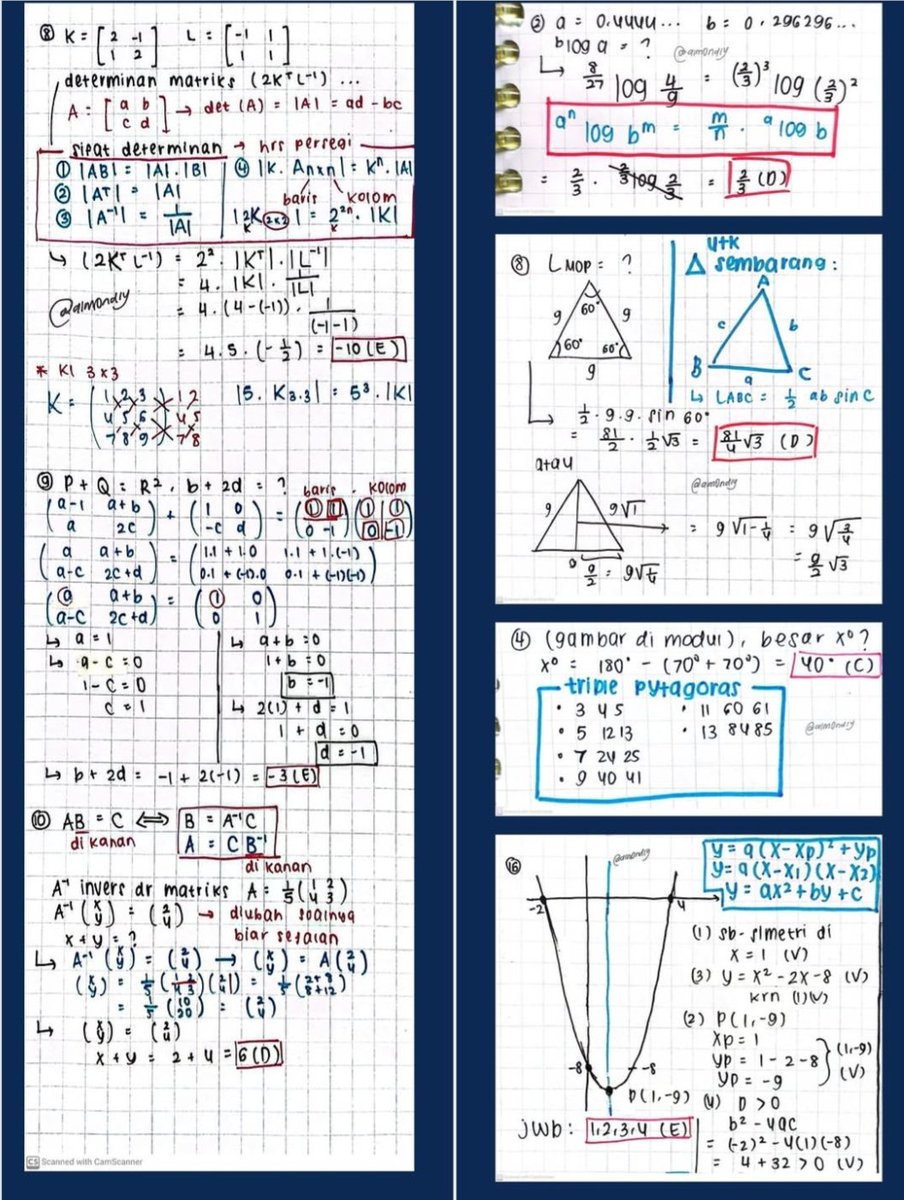 ⑧ K = [2 -1 / 1 2] L = [-1 1 / 1 1]
determinan matriks (2Kᵀ L⁻¹) ...
A = [a b / c d] → det (A) = |A| = ad - bc
sifat determinan → hrs persegi
① |AB| = |A|.|B| ④ |k. Anxn| = Kⁿ.|A|
② |Aᵀ| = |A| baris kolom
③ |A⁻¹| = 1/|A| |2K 2x2| = 2²ⁿ. |K|
K K
↳ (2Kᵀ L⁻¹) = 2². |Kᵀ|.|L⁻¹|
= 4. |K|. 1/|L|
@almond1y
= 4. (4-(-1)). 1/(-1-1)
= 4.5.(-1/2) = -10 (E)
* Kl 3x3
K = (1 2 3 / 4 5 6 / 7 8 9) 1 2 / 4 5 / 7 8 |5. K3.3| = 5³.|K|
⑨ P + Q = R², b + 2d = ? baris . kolom
(a-1 a+b / a 2c) + (1 0 / -c d) = (1 1 / 0 -1)(1 1 / 0 -1)
(a a+b / a-c 2c+d) = (1.1 + 1.0 1.1 + 1.(-1) / 0.1 + (-1).0 0.1 + (-1)(-1))
(a a+b / a-c 2c+d) = (1 0 / 0 1)
↳ a = 1 ↳ a+b = 0
↳ a-c = 0 1+b = 0
1-c = 0 b = -1
c = 1 ↳ 2(1) + d = 1
1 + d = 0
d = -1
↳ b + 2d = -1 + 2(-1) = -3 (E)
⑩ AB = C ⟺ B = A⁻¹C
di kanan A = C B⁻¹
di kanan
A⁻¹ invers dr matriks A = 1/5 (1 2 / 4 3)
A⁻¹ (x / y) = (2 / 4) → diubah soalnya
x + y = ? biar sesaian
↳ A⁻¹ (x / y) = (2 / 4) → (x / y) = A (2 / 4)
(x / y) = 1/5 (1 2 / 4 3)(2 / 4) = 1/5 (2+8 / 8+12)
= 1/5 (10 / 20) = (2 / 4)
↳ (x / y) = (2 / 4)
x + y = 2 + 4 = 6 (D)
CS Scanned with CamScanner
③ a = 0.4444... b = 0.296296...
ᵇlog a = ? @almond1y
↳ 8/27 log 4/9 = (2/3)³ log (2/3)²
aⁿ log bᵐ = m/n . ᵃlog b
= 2/3 . 2/3 log 2/3 = 2/3 (D)
⑧ L MOP = ? utk
Δ sembarang :
g g 60° 60° 60° g
A c b B a C
↳ LABC = 1/2 ab sin C
↳ 1/2 . 9.9. sin 60°
= 81/2 . 1/2 √3 = 81/4 √3 (D)
atau @almond1y
9 9√1 = 9 √1-1/4 = 9 √3/4
= 9/2 √3
9/2 = 9√1/4
④ (gambar di modul), besar x°?
x° = 180° - (70° + 70°) = 40° (C)
triple pytagoras
• 3 4 5 • 11 60 61
• 5 12 13 • 13 84 85 @almond1y
• 7 24 25
• 9 40 41
⑯ @almond1y
y = a (x-xp)² + yp
y = a (x-x1)(x-x2)
y = ax² + by + c
-2 4
-8 -8
P(1,-9)
(1) sb-simetri di
x = 1 (V)
(3) y = x² - 2x - 8 (V)
krn (1)(V)
(2) P (1, -9)
xp = 1
yp = 1 - 2 - 8 } (1,-9)
yp = -9 (V)
(4) D > 0
b² - 4ac
= (-2)² - 4(1)(-8)
= 4 + 32 > 0 (V)
jwb : 1,2,3,4 (E)